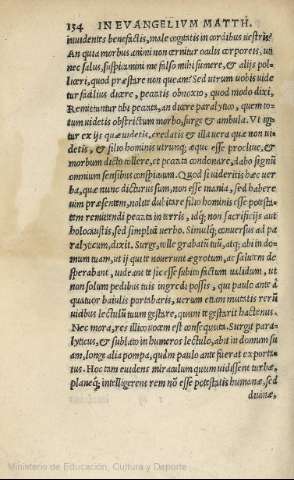 134 IN EVANGELIVM MATTH.
inuidentes benefactis, male cogitatis in cordibus uestris?
An quia morbus animi non cernitur oculis corporeis, ut
nec salus, suspicamini me falso mihi sumere, & alijs pol=
liceri, quod præstare non queam? Sed utrum uobis uide
tur facilius dicere, peccatis obnoxio, quod modo dixi,
Remittuntur tibi peccata, an dicere paralytico, quem to=
tum uidetis obstrictum morbo, surge & ambula. Vt igi
tur ex ijs quæ uidetis, credatis & illa uera quæ non ui
detis, & filio hominis utrunq; æque esse procliue, &
morbum dicto tollere, et peccata condonare, dabo signũ
omnium sensibus conspicuum. Quod si uideritis hæc uer
ba, quæ nunc dicturus sum, non esse inania, sed habere
uim præsentem, nolite dubitare filio hominis esse potesta
tem remittendi peccata in terris, idq; non sacrificijs aut
holocaustis, sed simplici uerbo. Simulq; conuersus ad pa
ralyticum, dixit. Surge, tolle grabatũ tuũ, atq; abi in do=
mum tuam, ut ij qui te nouerunt ægrotum, ac salutem de
sperabant, uideant te sic esse subito factum ualidum, ut
non solum pedibus tuis ingredi possis, qui paulo ante à
quatuor baiulis portabaris, uerum etiam mutatis rerũ
uicibus lectulũ tuum gestare, quum te gestarit hactenus.
Nec mora, res illico uocem est consequuta. Surgit para=
lyticus, & sublato in humeros lectulo, abit in domum su
am, longe alia pompa, quàm paulo ante fuerat exporta
tus. Hoc tam euidens miraculum quum uidissent turbæ,
planeq; intelligerent rem nõ esse potestatis humanæ, sed
diuinæ,
Ministerio de Educación, Cultura y Deporte